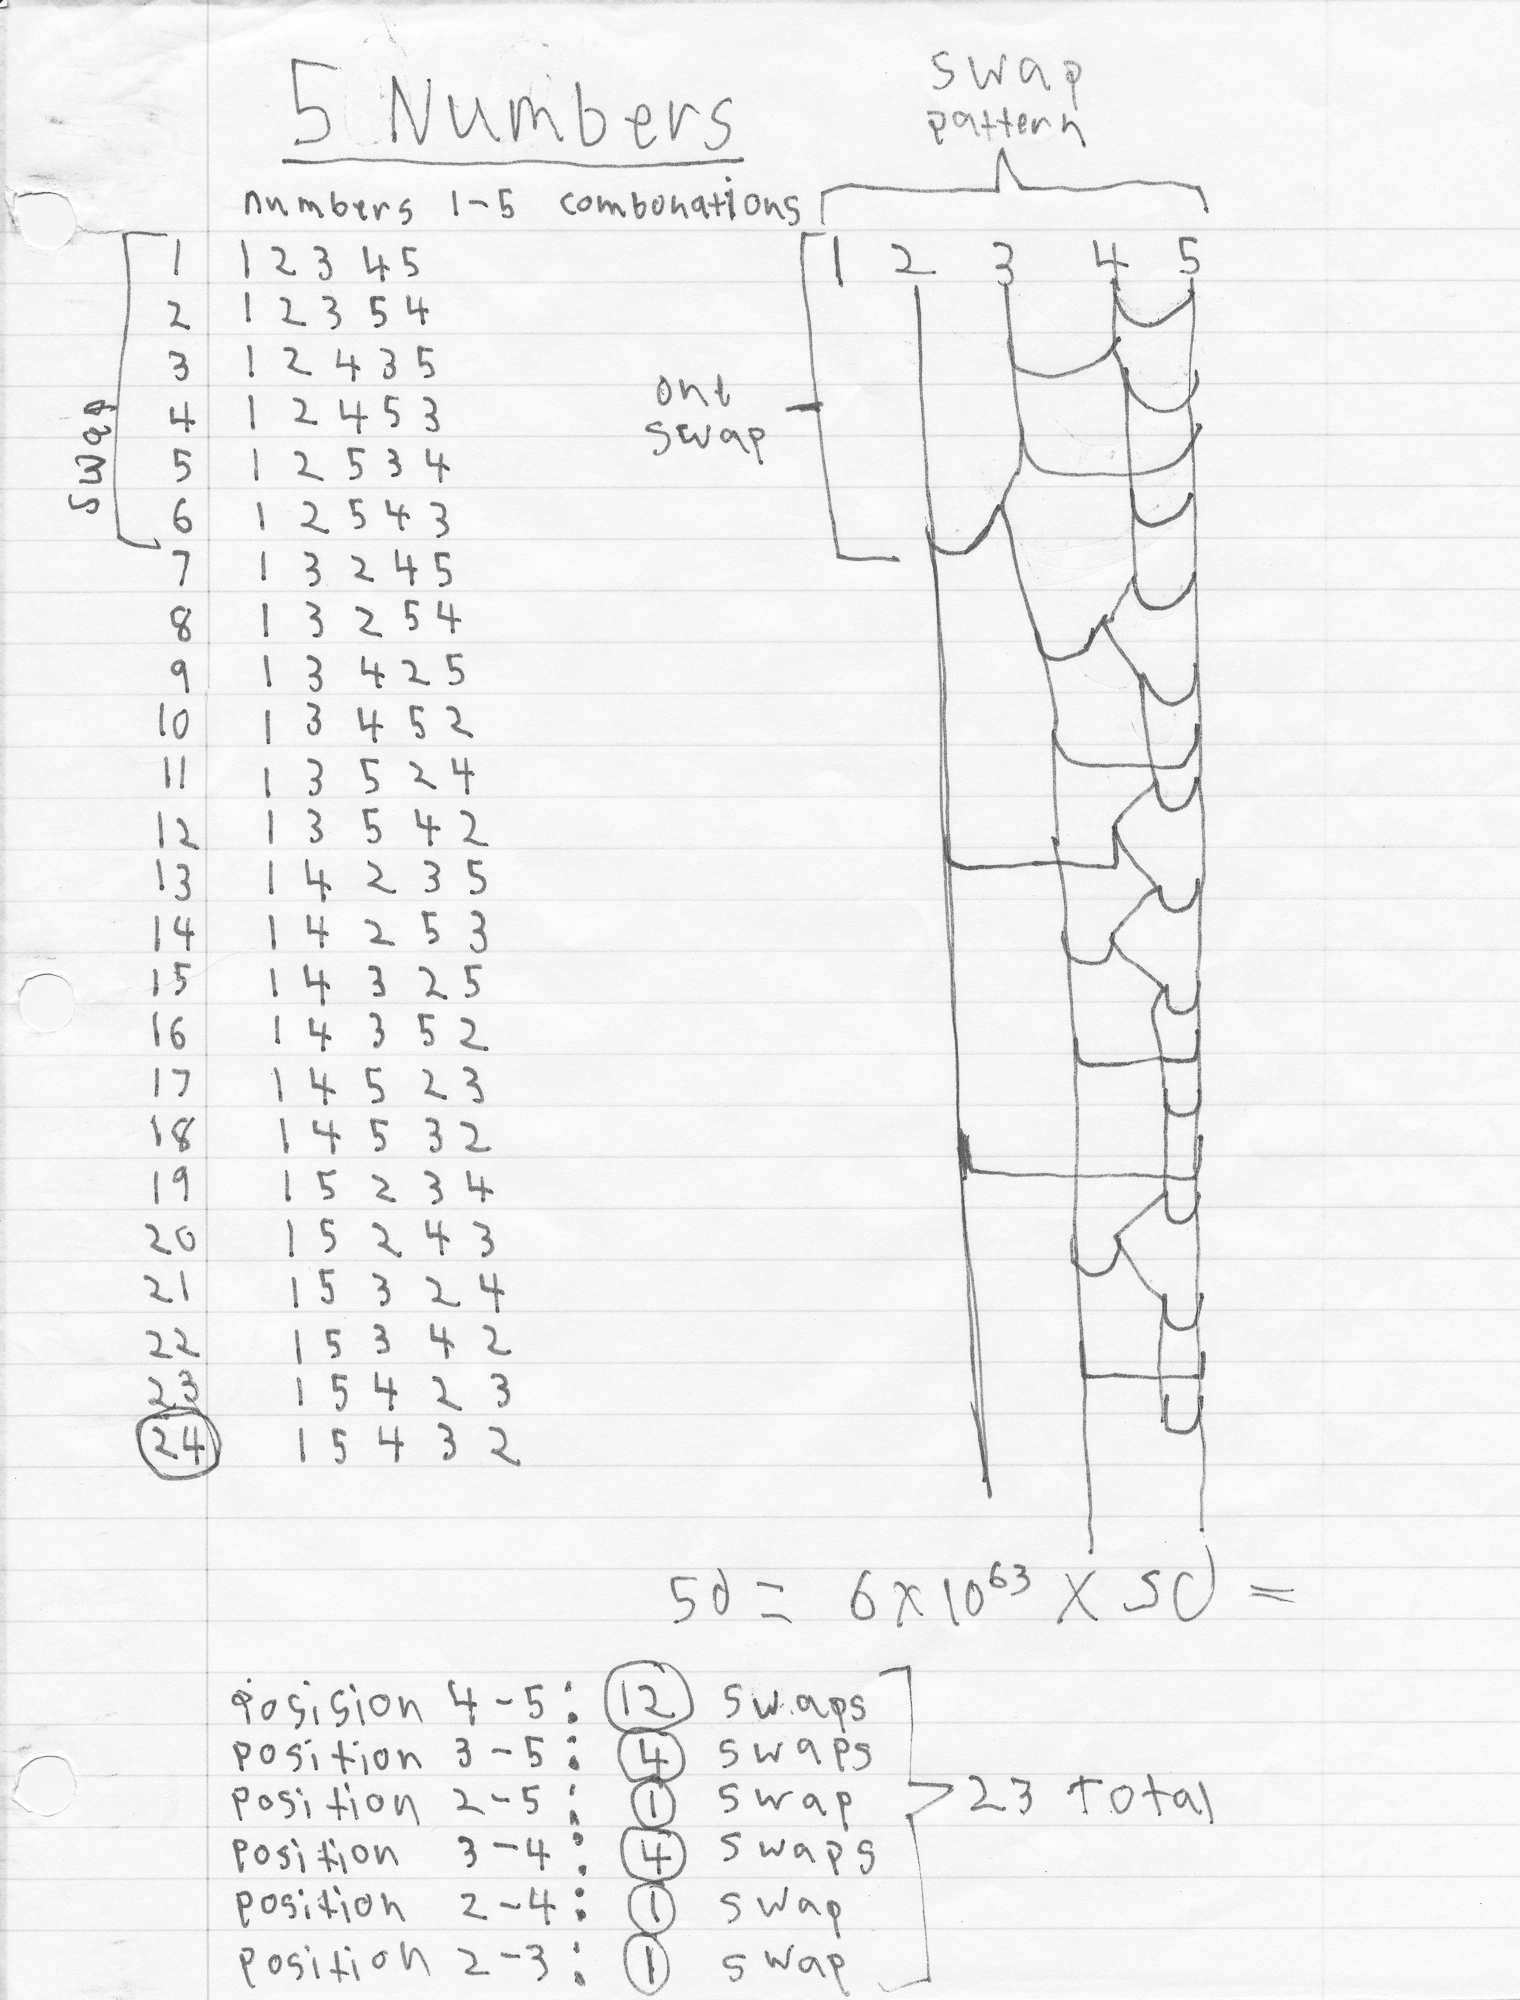 5 Numbers
swap
pattern
numbers 1-5 combonations
1 2 3 4 5
swap
one
swap
1 1 2 3 4 5
2 1 2 3 5 4
3 1 2 4 3 5
4 1 2 4 5 3
5 1 2 5 3 4
6 1 2 5 4 3
7 1 3 2 4 5
8 1 3 2 5 4
9 1 3 4 2 5
10 1 3 4 5 2
11 1 3 5 2 4
12 1 3 5 4 2
13 1 4 2 3 5
14 1 4 2 5 3
15 1 4 3 2 5
16 1 4 3 5 2
17 1 4 5 2 3
18 1 4 5 3 2
19 1 5 2 3 4
20 1 5 2 4 3
21 1 5 3 2 4
22 1 5 3 4 2
23 1 5 4 2 3
24 1 5 4 3 2
50 = 6 x 10⁶³ x 50 =
posision 4-5: 12 swaps
position 3-5: 4 swaps
position 2-5: 1 swap
position 3-4: 4 swaps
position 2-4: 1 swap
position 2-3: 1 swap
23 total